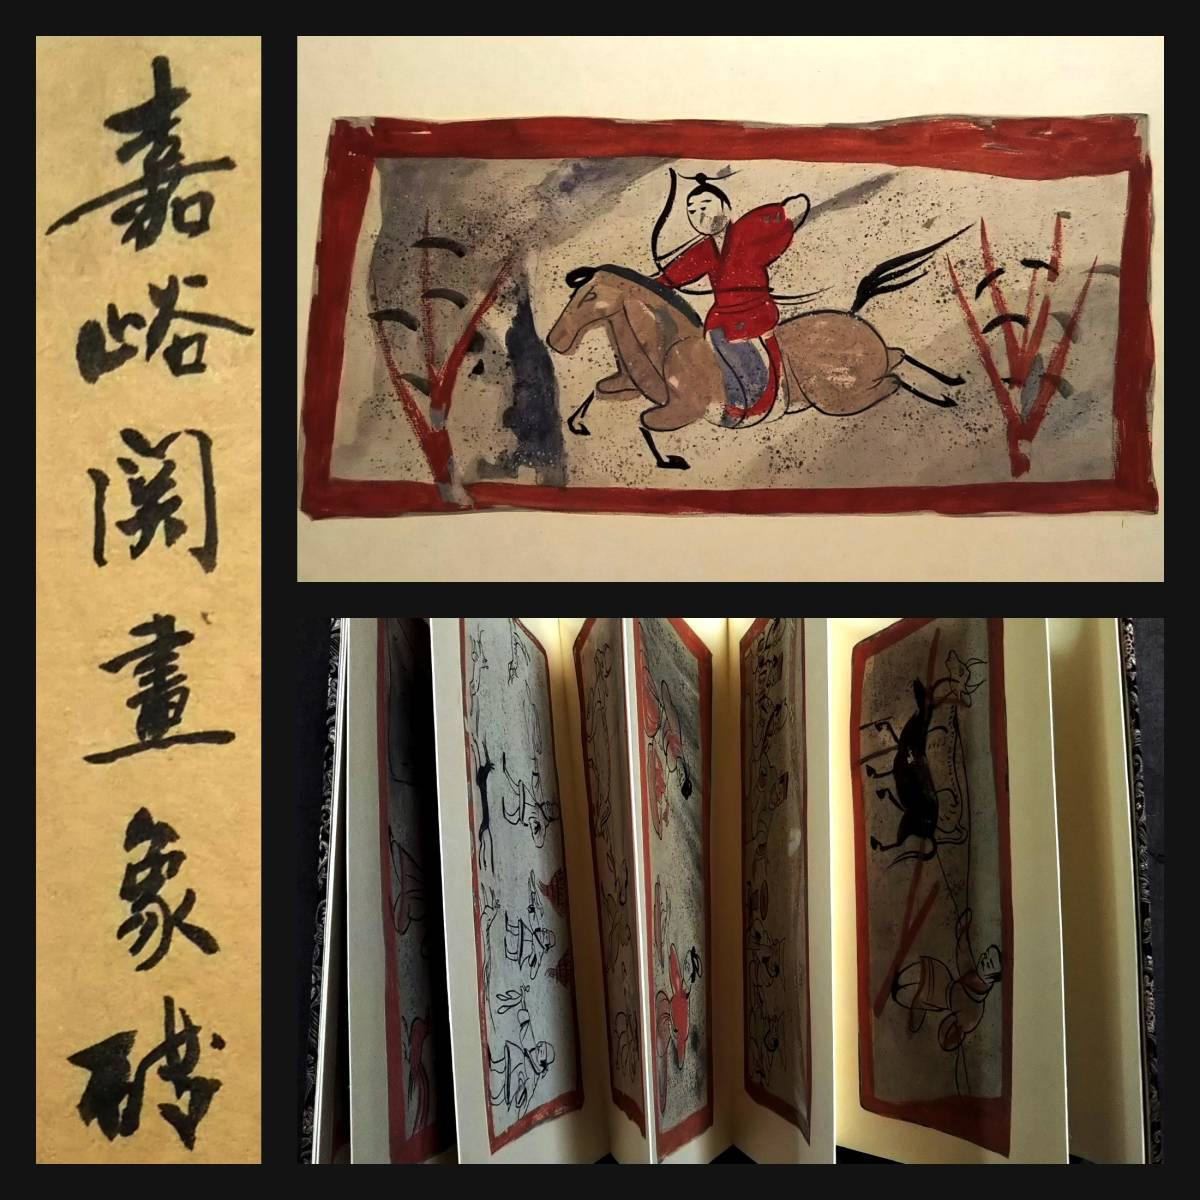 嘉峪關畫象磚